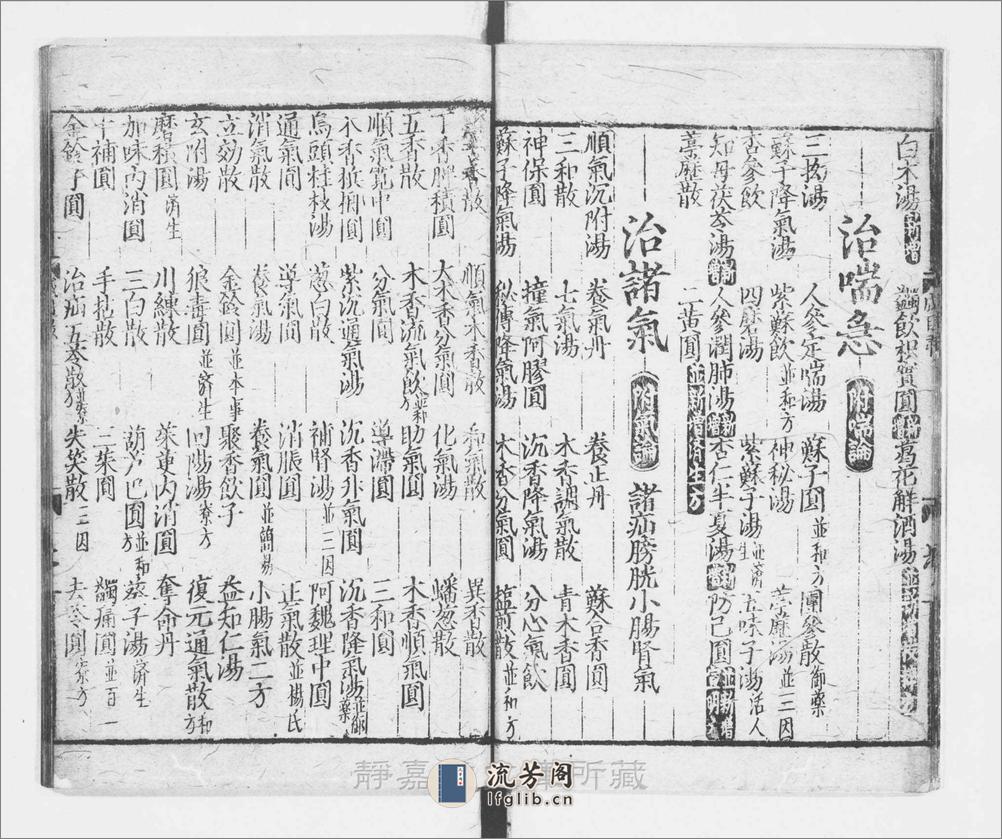 白朮湯 新增 蠲飲枳實圓 葛花解酒湯
治喘急 附喘論
三拗湯 人參定喘湯 蘇子圓 並和方 團參散 御藥
蘇子降氣湯 紫蘇飲 並和方 神秘湯 葶藶湯 並三因
杏參飲 四磨湯 紫蘇子湯 並濟生 五味子湯 活人
知母茯苓湯 新增 人參潤肺湯 新增 杏仁半夏湯 防己圓
葶藶散 二黃圓 並新增濟生方
治諸氣 附氣論 諸疝膀胱小腸腎氣
順氣沉附湯 養氣丹 養正丹 蘇合香圓
三和散 七氣湯 木香調氣散 青木香圓
神保圓 撞氣阿膠圓 沉香降氣湯 分心氣飲
蘇子降氣湯 秘傳降氣湯 木香分氣圓 鹽煎散 並和方
順氣木香散 和氣散 異香散
丁香脾積圓 大木香分氣圓 化氣湯 蟠葱散
五香散 木香流氣飲 並和方 助氣圓 木香順氣圓
順氣寬中圓 分氣圓 導滯圓 三和圓
木香檳榔圓 紫沉通氣湯 沉香升氣圓 沉香降氣湯 並御藥
烏頭桂枝湯 葱白散 補腎湯 並三因 阿魏理中圓
通氣圓 導氣圓 消脹圓 正氣散 並楊氏
消氣散 養氣湯 養氣圓 並簡易 小腸氣二方
立効散 金鈴圓 並本事 聚香飲子 益知仁湯
玄附湯 狼毒圓 並濟生 回陽湯 寮方 復元通氣散 和方
磨積圓 濟生 川練散 茱萸內消圓 奪命丹
加味內消圓 三白散 葫蘆巴圓 並和方 茘子湯 濟生
十補圓 手拈散 三茱圓 蠲痛圓 並百一
金鈴子圓 治疝五苓散 失笑散 三因